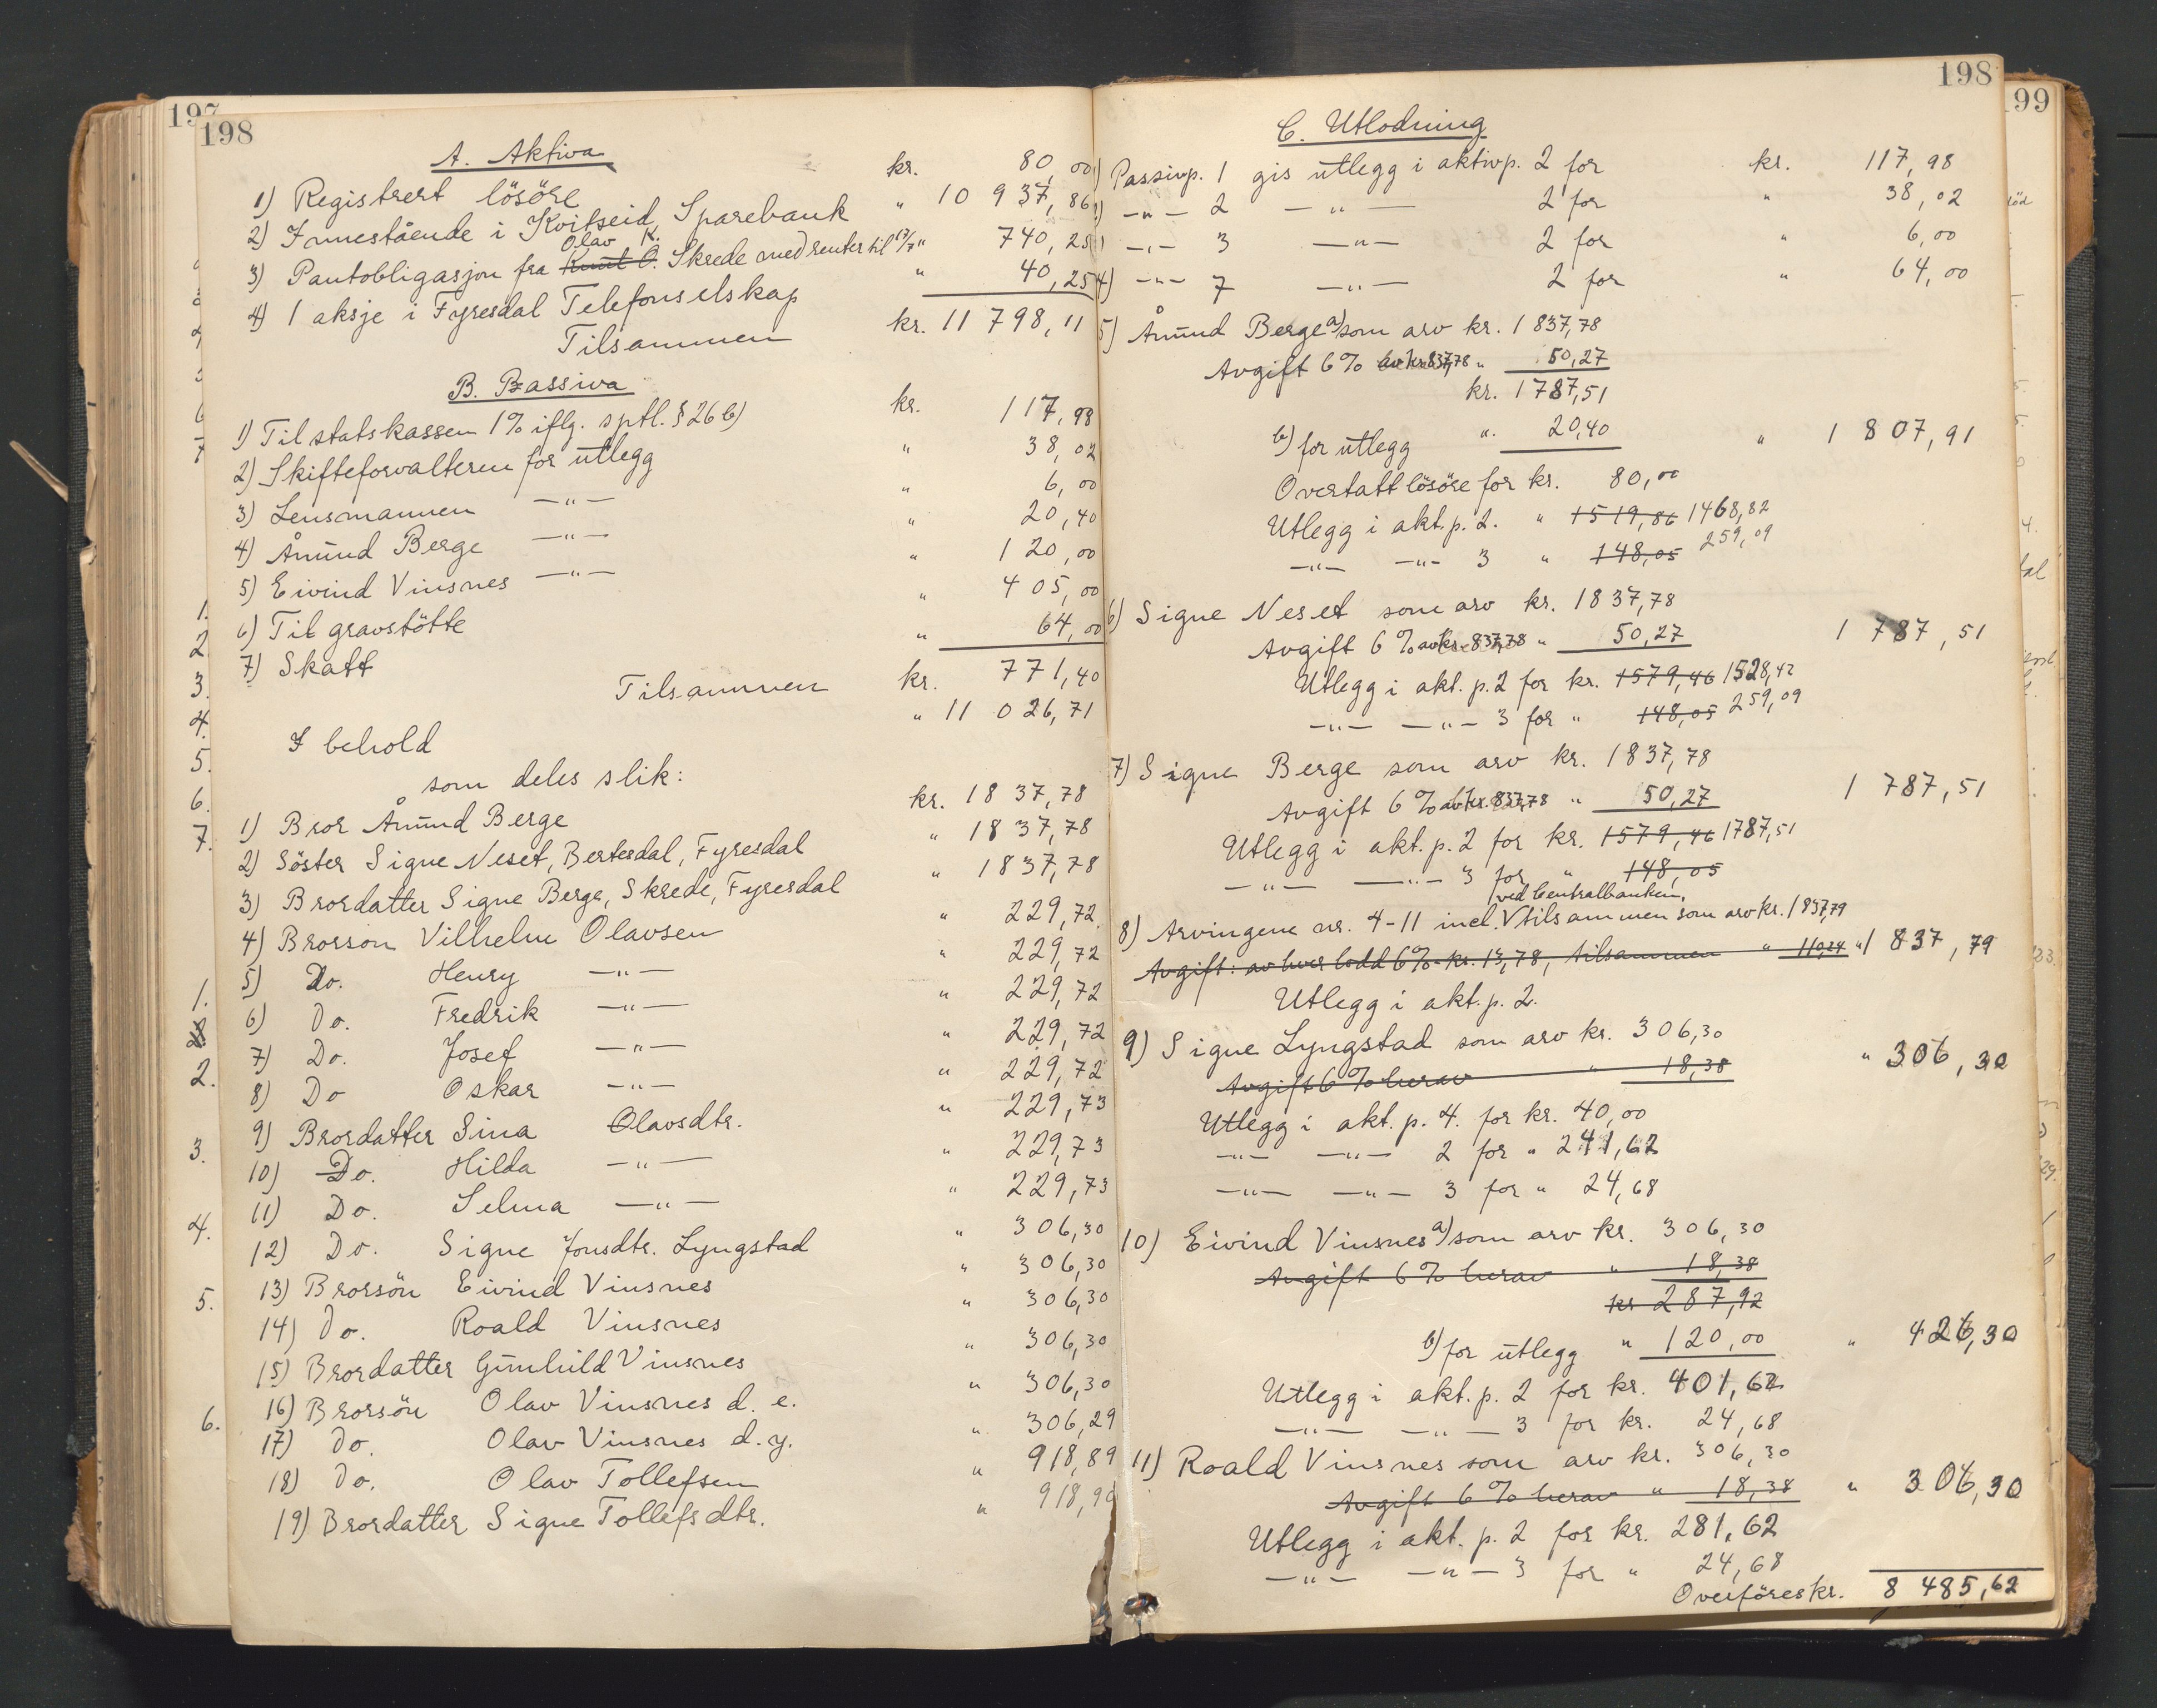 197
198
A. Aktiva
1) Registrert lösöre kr. 80,00
2) Innestående i Kviteseid Sparebank " 10 937,86
Olav K.
3) Pantobligasjon fra Knut O. Skrede med renter til 17/7 " 740,25
4) 1 aksje i Fyresdal Telefonselskap " 40,25
Tilsammen kr. 11 798,11
B. Passiva
1) Til statskassen 1% iflg. sptl. § 26 b) kr. 117,98
2) Skifteforvalteren for utlegg " 38,02
3) Lensmannen —"— " 6,00
4) Åmund Berge —"— " 20,40
5) Eivind Vinsnes —"— " 120,00
6) Til gravstötte " 405,00
7) Skatt " 64,00
Tilsammen kr. 771,40
I behold " 11 026,71
som deles slik:
1) Bror Åmund Berge kr. 1837,78
2) Söster Signe Neset, Bertesdal, Fyresdal " 1837,78
3) Brordatter Signe Berge, Skrede, Fyresdal " 1837,78
4) Brorson Vilhelm Olavsen " 229,72
5) Do. Henry —"— " 229,72
6) Do. Fredrik —"— " 229,72
7) Do. Josef —"— " 229,72
8) Do Oskar —"— " 229,72
9) Brordatter Sina Olavsdtr. " 229,73
10) Do. Hilda —"— " 229,73
11) Do. Selma —"— " 229,73
12) Do. Signe Jonsdtr. Lyngstad " 306,30
13) Brorsön Eivind Vinsnes " 306,30
14) Do. Roald Vinsnes " 306,30
15) Brordatter Gunhild Vinsnes " 306,30
16) Brorsön Olav Vinsnes d. e. " 306,30
17) Do. Olav Vinsnes d. y. " 306,29
18) Do. Olav Tollefsen " 918,89
19) Brordatter Signe Tollefsdtr. " 918,90
198
99
C. Utlodning
1) Passivp. 1 gis utlegg i aktivp. 2 for kr. 117,98
2) —"— 2 —"— 2 for " 38,02
3) —"— 3 —"— 2 for " 6,00
4) —"— 7 —"— 2 for " 64,00
5) Åmund Berge a) som arv kr. 1837,78
Avgift 6% av kr. 837,78 " 50,27
kr. 1787,51
b) for utlegg " 20,40 " 1 807,91
Overtatt lösöre for kr. 80,00
Utlegg i akt. p. 2. " 1519,86 1468,82
—"— —"— 3 " 148,05 259,09
6) Signe Neset som arv kr. 1837,78
Avgift 6% av kr. 837,78 " 50,27 1 787,51
Utlegg i akt. p. 2 for kr. 1579,46 1528,42
—"— —"— 3 for " 148,05 259,09
7) Signe Berge som arv kr. 1837,78
Avgift 6% av kr. 837,78 " 50,27 1 787,51
Utlegg i akt. p. 2 for kr. 1579,46 1787,51
—"— —"— 3 for " 148,05
ved Centralbanken,
8) Arvingene nr. 4-11 incl. V tilsammen som arv kr. 1837,79
Avgift: av hver lodd 6% - kr. 13,78, tilsammen " 110,24 " 1 837,79
Utlegg i akt. p. 2.
9) Signe Lyngstad som arv kr. 306,30
Avgift 6% herav " 18,38 " 306,30
Utlegg i akt. p. 4. for kr. 40,00
—"— —"— 2 for " 241,62
—"— —"— 3 for " 24,68
10) Eivind Vinsnes a) som arv kr. 306,30
Avgift 6% herav " 18,38
kr 287,92
b) for utlegg " 120,00 " 426,30
Utlegg i akt. p. 2 for kr. 401,62
—"— —"— 3 for kr. 24,68
11) Roald Vinsnes som arv kr. 306,30
Avgift 6% herav " 18,38 " 306,30
Utlegg i akt. p. 2 for kr. 281,62
—"— —"— 3 for " 24,68
Overföres kr. 8 485,62